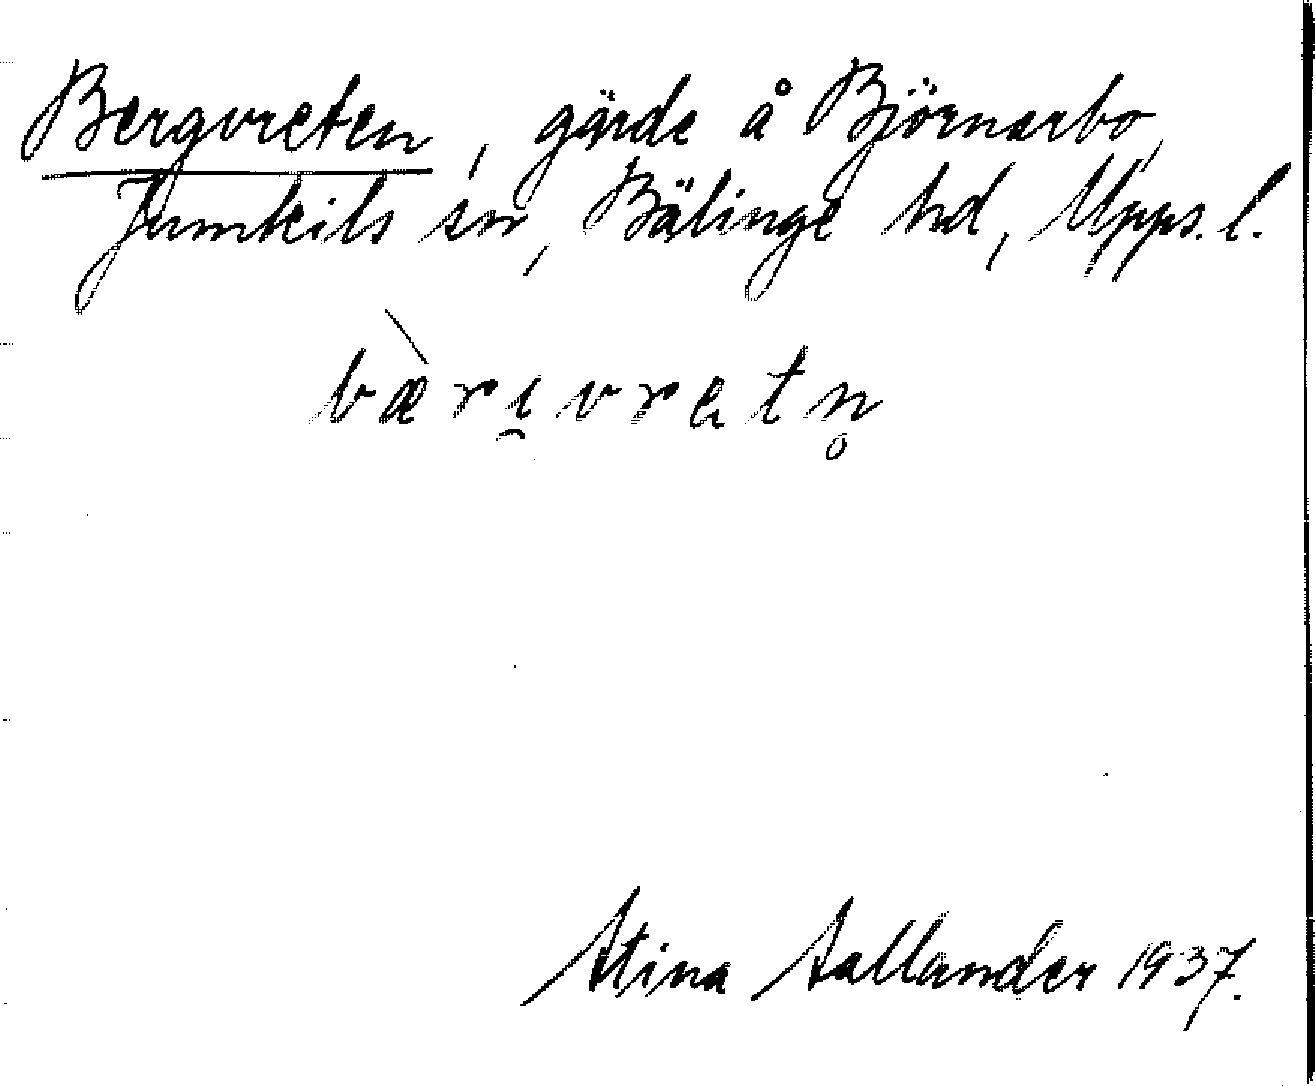 Bergvreten, gärde å Björnarbo,
Jumkils sn, Bälinge hd, Upps. l.
bæ̀rı̯vretn̥
Stina Sallander 1937.